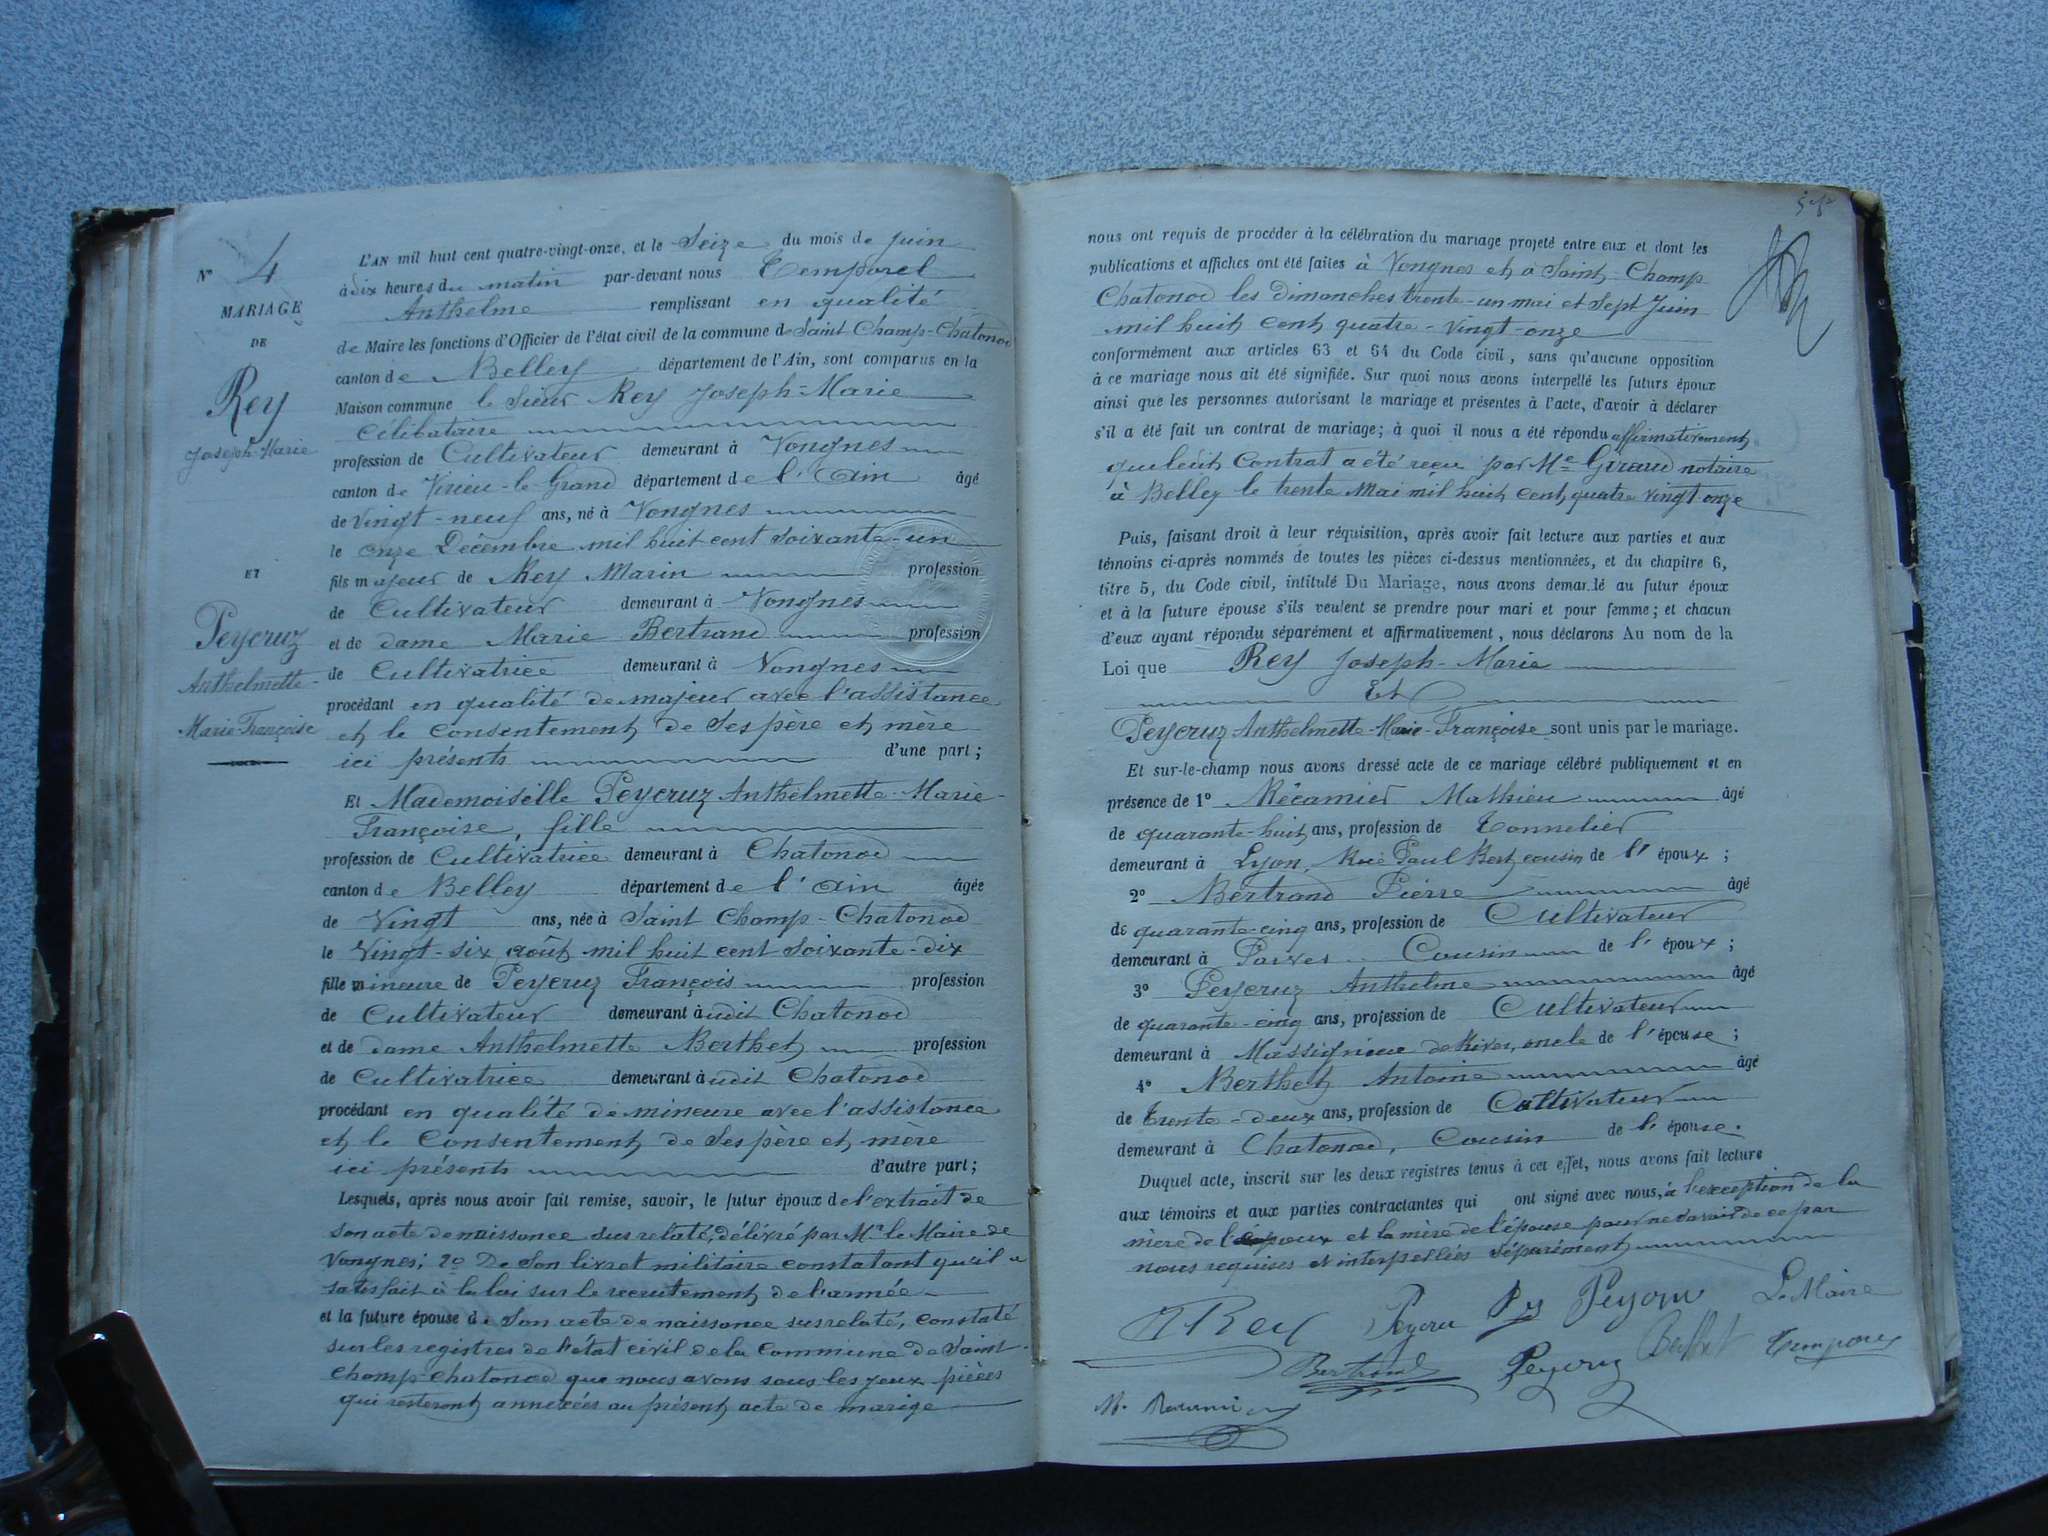 N° 4
MARIAGE
DE
Rey
Joseph Marie
ET
Peycruz
Anthelmette
Marie Françoise
L'AN mil huit cent quatre-vingt-onze, et le Seize du mois de juin
à dix heures du matin par-devant nous Temporel
Anthelme remplissant en qualité
de Maire les fonctions d'Officier de l'état civil de la commune de Saint Champ-Chatonod
canton de Belley département de l'Ain, sont comparus en la
Maison commune le Sieur Rey Joseph-Marie
Célibataire
profession de Cultivateur demeurant à Vongnes
canton de Virieu-le-Grand département de l'Ain âgé
de Vingt-neuf ans, né à Vongnes
le onze Décembre mil huit cent soixante-un
fils majeur de Rey Marin profession
de Cultivateur demeurant à Vongnes
et de dame Marie Bertrand profession
de Cultivatrice demeurant à Vongnes
procédant en qualité de majeur avec l'assistance
et le Consentement de Ses père et mère
ici présents d'une part;
Et Mademoiselle Peycruz Anthelmette-Marie-
Françoise, fille
profession de Cultivatrice demeurant à Chatonod
canton de Belley département de l'Ain âgée
de Vingt ans, née à Saint Champ-Chatonod
le Vingt-six août mil huit cent soixante-dix
fille mineure de Peycruz François profession
de Cultivateur demeurant àudit Chatonod
et de dame Anthelmette Berthet profession
de Cultivatrice demeurant àudit Chatonod
procédant en qualité de mineure avec l'assistance
et le Consentement de Ses père et mère
ici présents d'autre part;
Lesquels, après nous avoir fait remise, savoir, le futur époux de l'extrait de
Son acte de naissance sus relaté, délivré par Mr le Maire de
Vongnes; 2° De Son livret militaire constatant qu'il a
satisfait à la loi sur le recrutement de l'armée
et la future épouse de Son acte de naissance susrelaté, constaté
sur les registres de l'état civil de la Commune de Saint-
Champ-Chatonod que nous avons sous les yeux pièces
qui resteront annexées au présent acte de marige
nous ont requis de procéder à la célébration du mariage projeté entre eux et dont les
publications et affiches ont été faites à Vongnes et à Saint-Champ
Chatonod les dimanches trente-un mai et Sept Juin
mil huit cent quatre-vingt-onze
conformément aux articles 63 et 64 du Code civil, sans qu'aucune opposition
à ce mariage nous ait été signifiée. Sur quoi nous avons interpellé les futurs époux
ainsi que les personnes autorisant le mariage et présentes à l'acte, d'avoir à déclarer
s'il a été fait un contrat de mariage; à quoi il nous a été répondu affirmativement
que leur Contrat a été reçu par Me Giraud notaire
à Belley le trente Mai mil huit cent quatre vingt onze
Puis, faisant droit à leur réquisition, après avoir fait lecture aux parties et aux
témoins ci-après nommés de toutes les pièces ci-dessus mentionnées, et du chapitre 6,
titre 5, du Code civil, intitulé Du Mariage, nous avons demandé au futur époux
et à la future épouse s'ils veulent se prendre pour mari et pour femme; et chacun
d'eux ayant répondu séparément et affirmativement, nous déclarons Au nom de la
Loi que Rey Joseph-Marie
Et
Peycruz Anthelmette-Marie-Françoise sont unis par le mariage.
Et sur-le-champ nous avons dressé acte de ce mariage célébré publiquement et en
présence de 1° Récamier Mathieu âgé
de quarante-huit ans, profession de Tonnelier
demeurant à Lyon, Rue Paul Bert cousin de l'époux;
2° Bertrand Pierre âgé
de quarante-cinq ans, profession de Cultivateur
demeurant à Parves Cousin de l'époux;
3° Peycruz Anthelme âgé
de quarante-cinq ans, profession de Cultivateur
demeurant à Massignieu de Rives, oncle de l'épouse;
4° Berthet Antoine âgé
de Trente-deux ans, profession de Cultivateur
demeurant à Chatonod, Cousin de l'épouse.
Duquel acte, inscrit sur les deux registres tenus à cet effet, nous avons fait lecture
aux témoins et aux parties contractantes qui ont signé avec nous, à l'exception de la
mère de l'époux et la mère de l'épouse pour ne savoir de ce par
nous requises et interpellées séparément
Rey Peycru Rey Peycru Le Maire
Bertrand Peycruz Berthet Temporel
M. Recamier